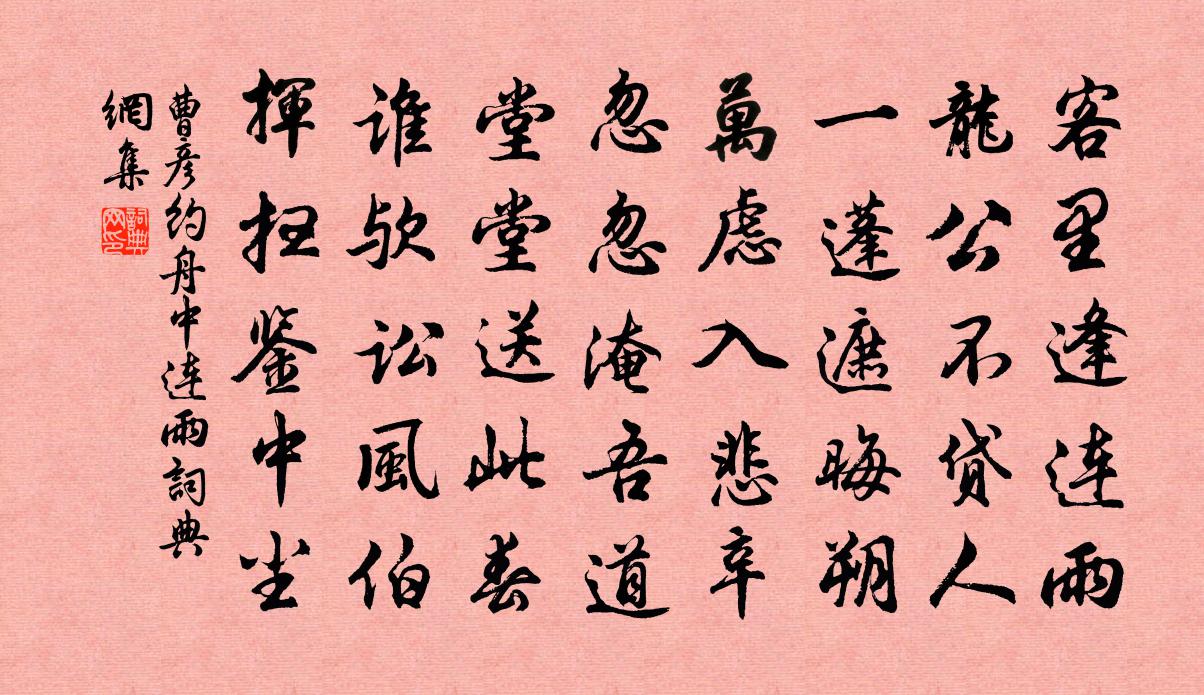 客里逢連雨
龍公不貸人
一蓬遮晦朔
萬慮入悲辛
忽忽淹吾道
堂堂送此春
誰欤訟風伯
揮掃鋻中尘
曹彥約舟中連雨詞典
網集
詞典
网印